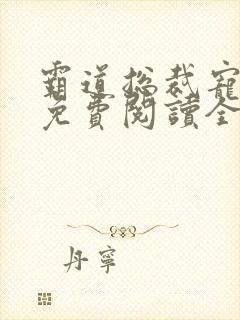 霸道总裁寵
免費閱讀全
丹寧